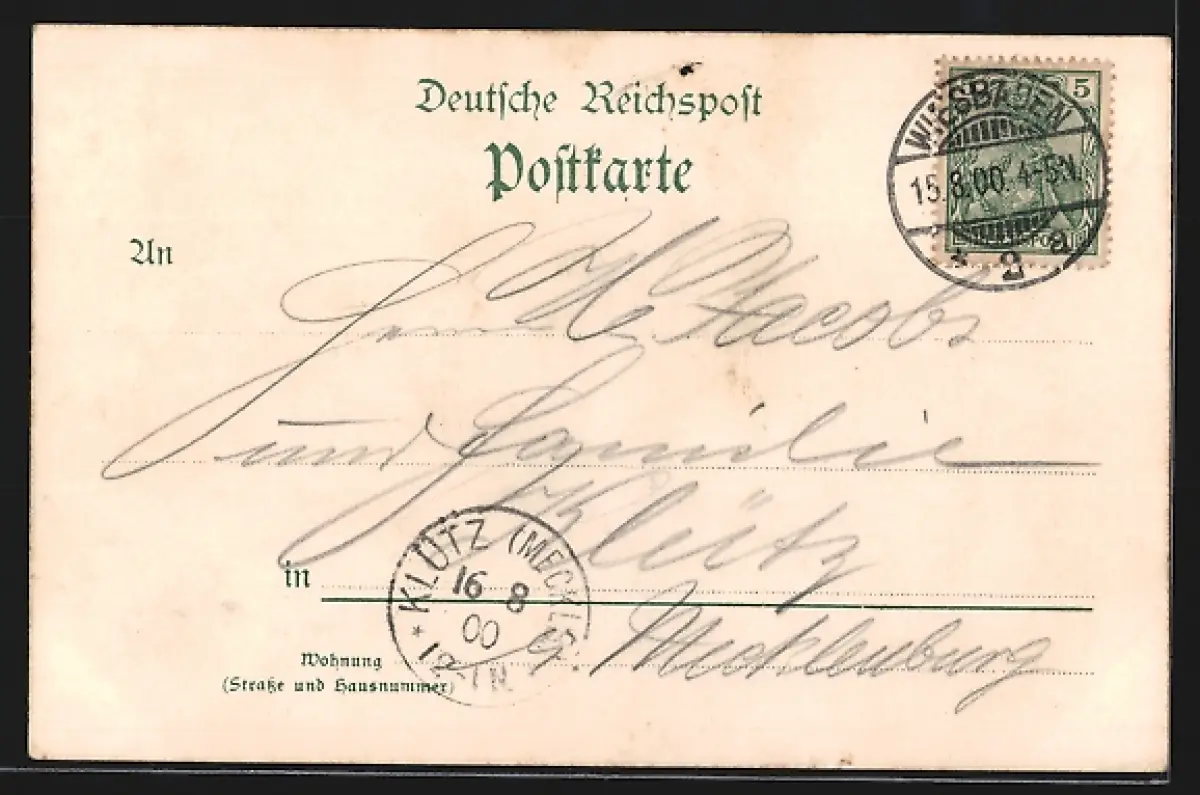 Deutsche Reichspost
Postkarte
5
WIESBADEN
15.8.00. 4-5N.
* 2 a
An
Herrn H. Jacobs
und Familie
in Klütz
KLÜTZ (MECKLB.)
16 8
00
* 12-1N
Wohnung
(Straße und Hausnummer)
Mecklenburg